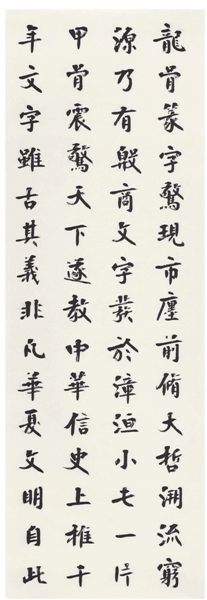 龍骨篆字驚現市廛前脩大哲溯流窮
源乃有殷商文字發於漳洹小屯一片
甲骨震驚天下遂教中華信史上推千
年文字雖古其義非凡華夏文明自此